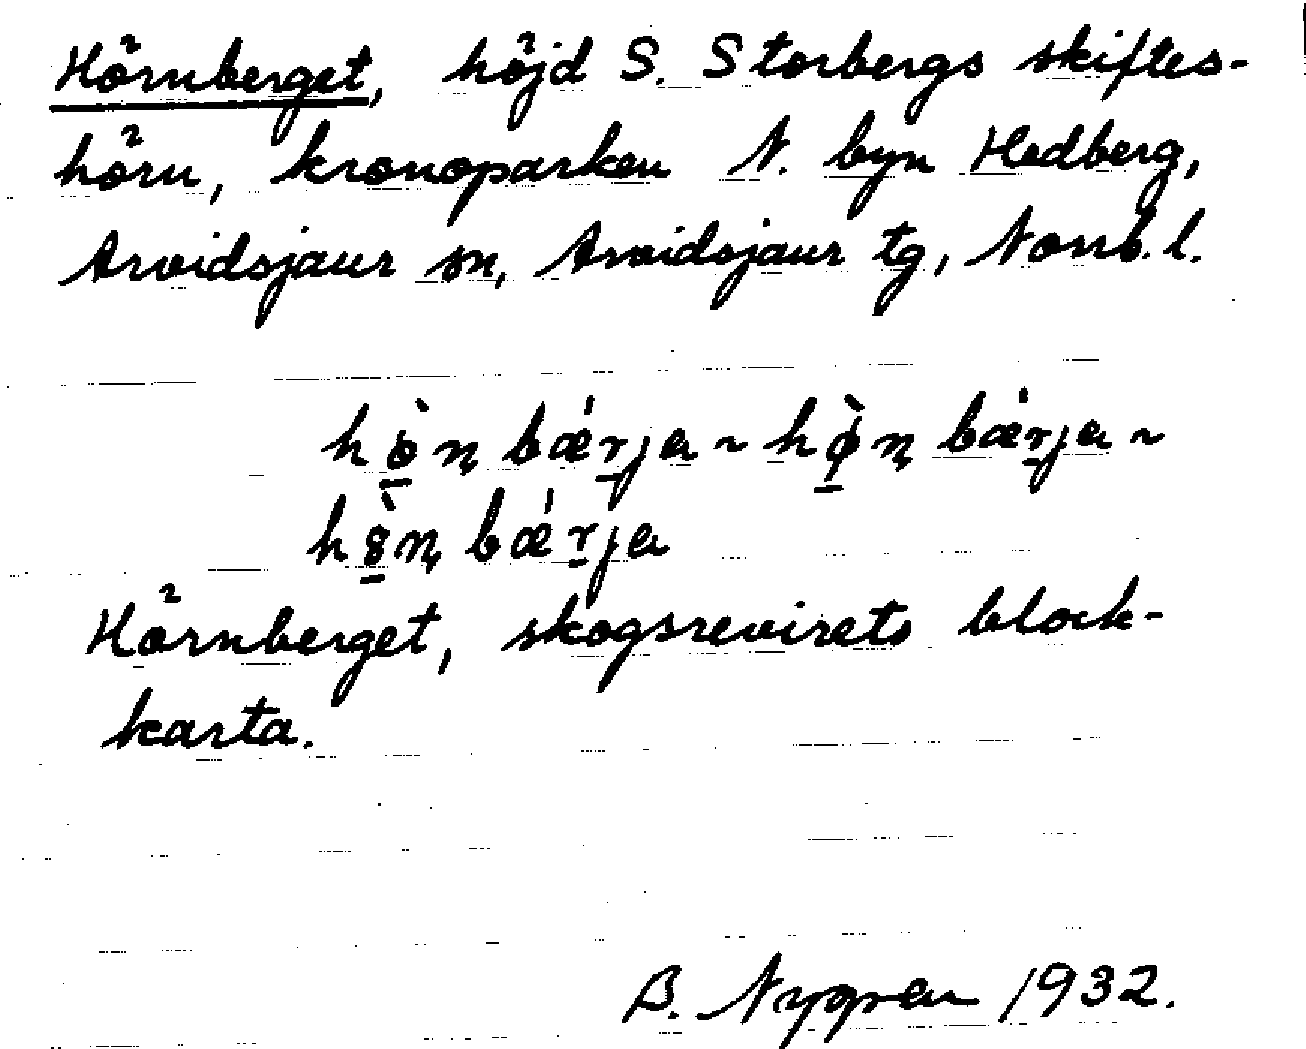 Hörnberget, höjd S. Storbergs skiftes-
hörn, kronoparken N. byn Hedberg,
Arvidsjaur sn, Arvidsjaur tg, Norrb. l.
hö̠̀ɳ bǽr̠ja ~ hø̠̀ɳ bǽr̠ja ~
h8̠̀ɳ bǽr̠ja
Hörnberget, skogsrevirets block-
karta.
B. Nygren 1932.